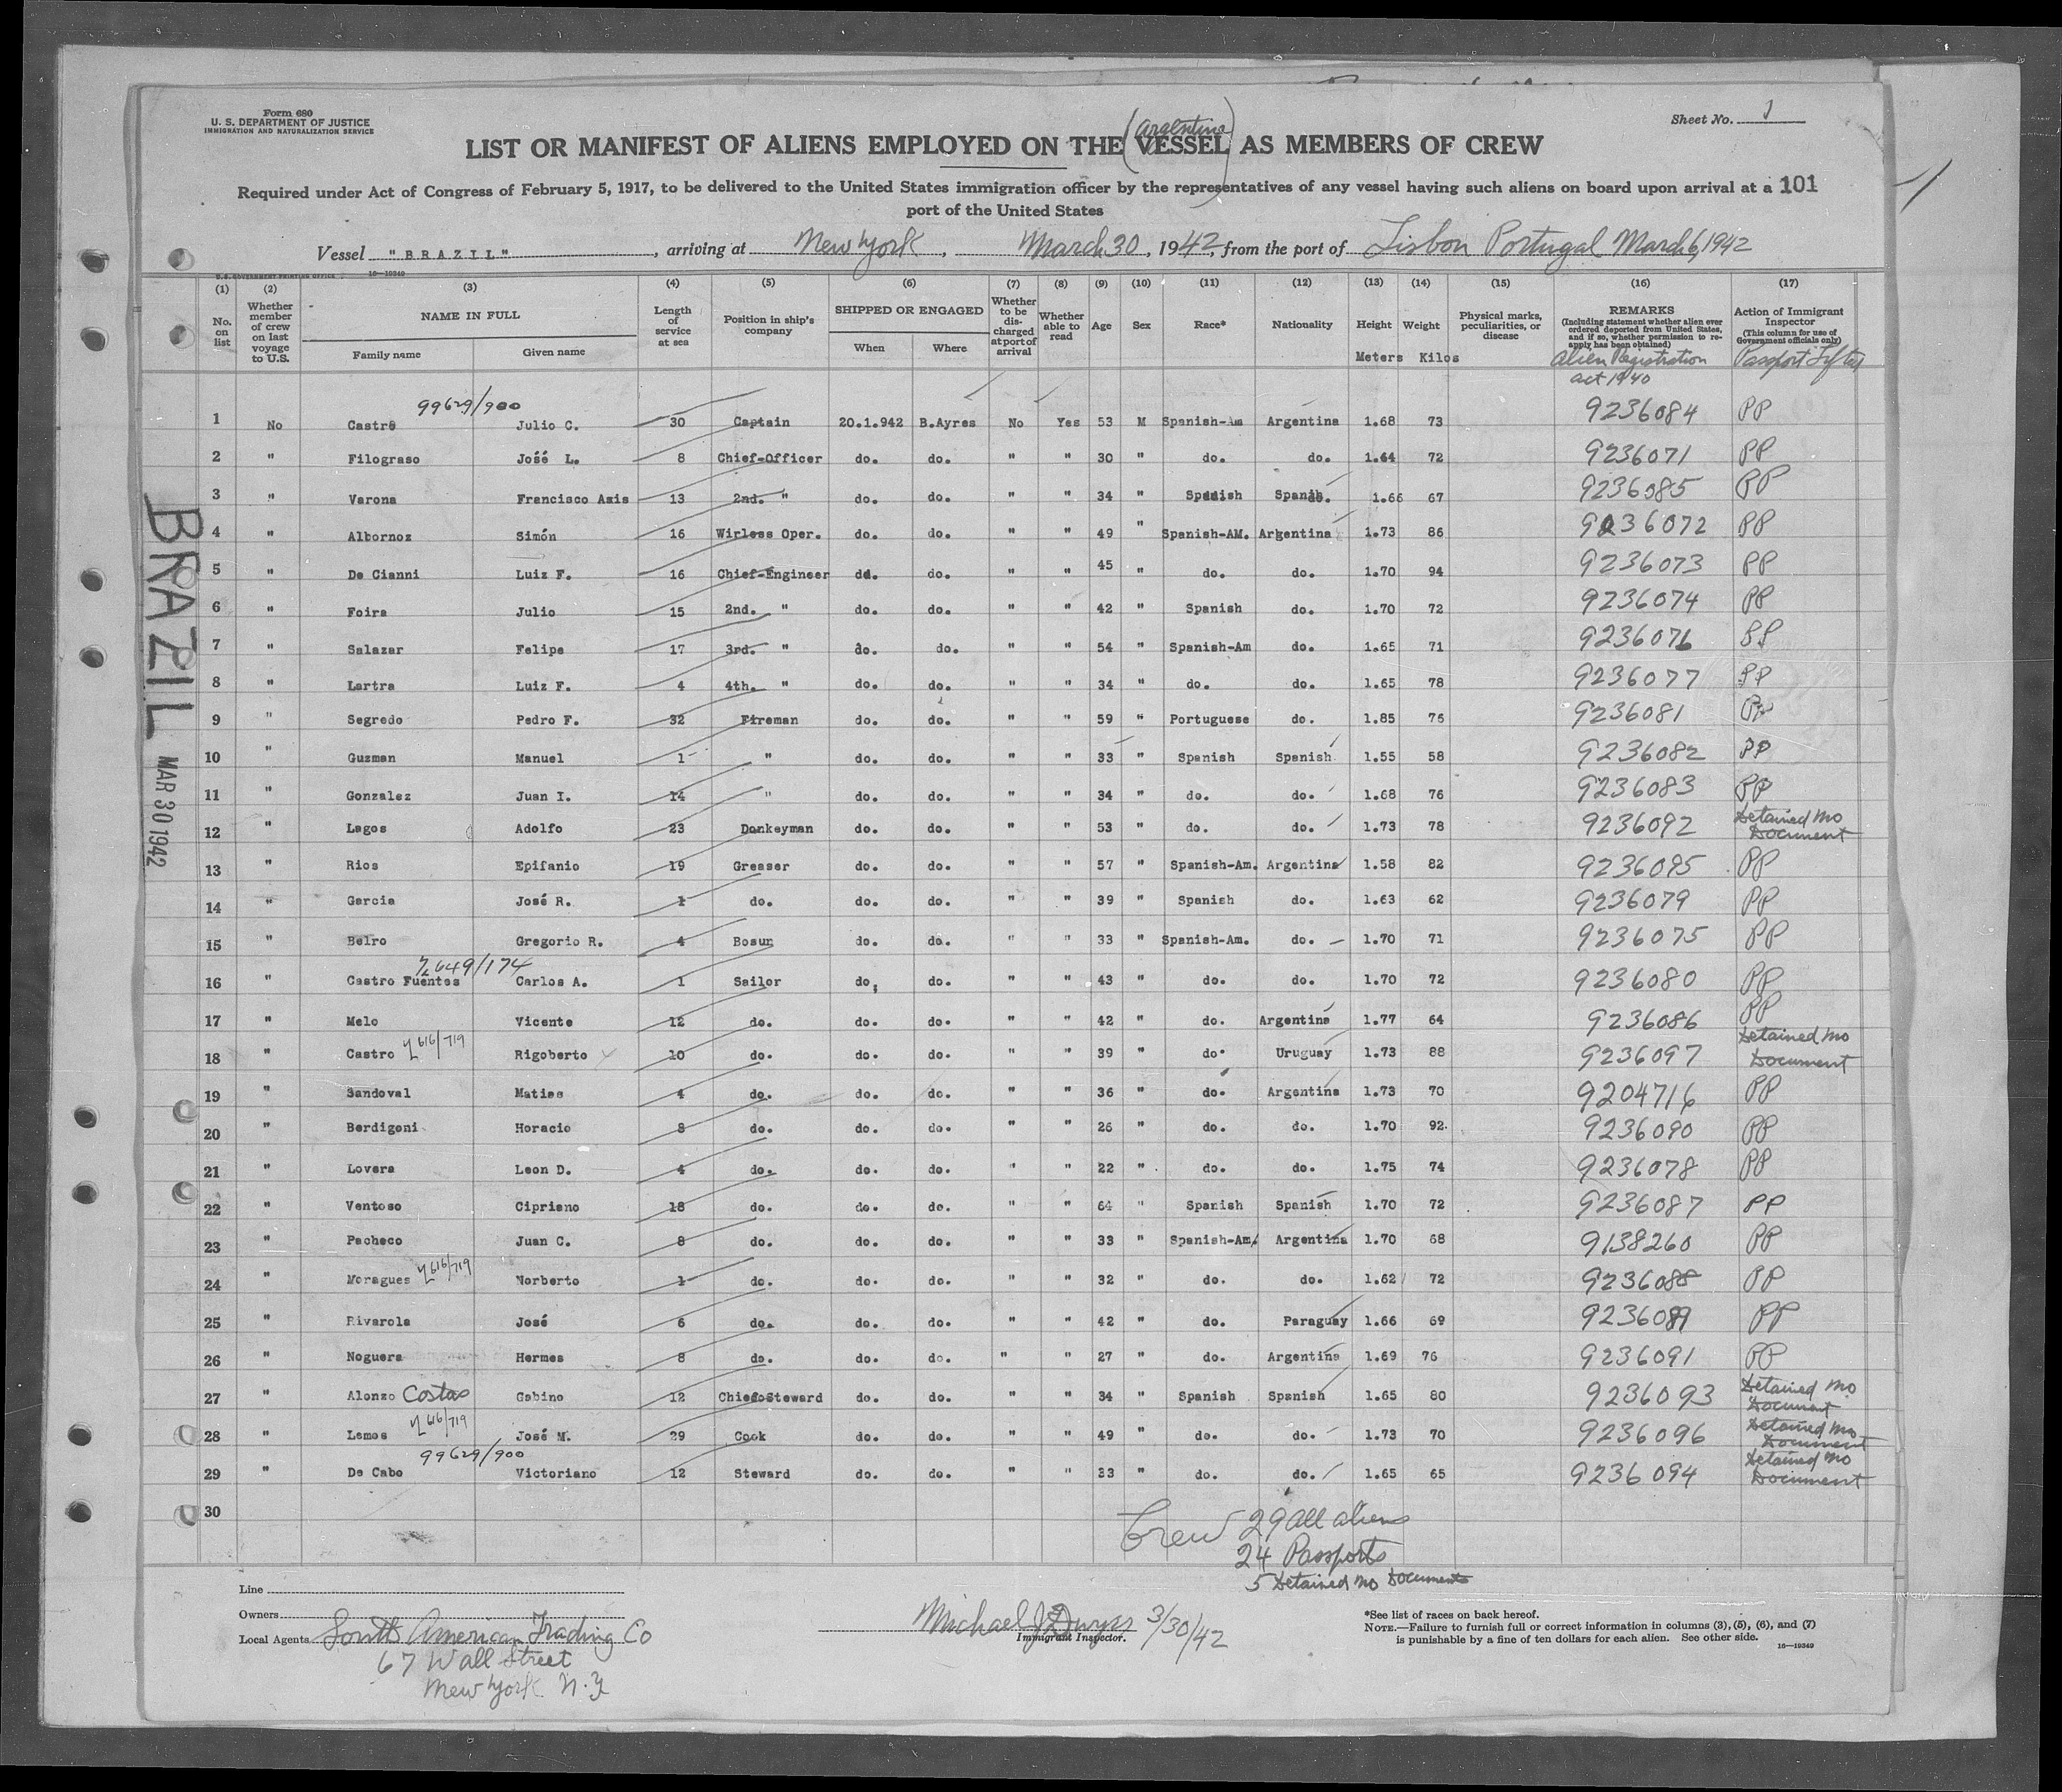 Form 680
U. S. DEPARTMENT OF JUSTICE
IMMIGRATION AND NATURALIZATION SERVICE
Sheet No. 1
(Argentine)
LIST OR MANIFEST OF ALIENS EMPLOYED ON THE VESSEL AS MEMBERS OF CREW
Required under Act of Congress of February 5, 1917, to be delivered to the United States immigration officer by the representatives of any vessel having such aliens on board upon arrival at a 101
port of the United States
Vessel "BRAZIL", arriving at New York, March 30, 1942, from the port of Lisbon Portugal March 6, 1942
U.S. GOVERNMENT PRINTING OFFICE 16—19349
(1) (2) (3) (4) (5) (6) (7) (8) (9) (10) (11) (12) (13) (14) (15) (16) (17)
No. on list
Whether member of crew on last voyage to U.S.
NAME IN FULL
Family name Given name
Length of service at sea
Position in ship's company
SHIPPED OR ENGAGED
When Where
Whether to be discharged at port of arrival
Whether able to read
Age
Sex
Race*
Nationality
Height Meters
Weight Kilos
Physical marks, peculiarities, or disease
REMARKS
(Including statement whether alien ever ordered deported from United States, and if so, whether permission to reapply has been obtained)
Alien Registration act 1940
Action of Immigrant Inspector
(This column for use of Government officials only)
Passport
99629/900
1 No Castro Julio C. 30 Captain 20.1.942 B.Ayres No Yes 53 M Spanish-Am Argentina 1.68 73 9236084 PP
2 " Filograso José L. 8 Chief-Officer do. do. " " 30 " do. do. 1.64 72 9236071 PP
3 " Varona Francisco Axis 13 2nd. " do. do. " " 34 " Spanish Spanish. 1.66 67 9236085 PP
4 " Albornoz Simón 16 Wirless Oper. do. do. " " 49 " Spanish-AM. Argentina 1.73 86 9236072 PP
5 " De Cianni Luiz F. 16 Chief-Engineer do. do. " " 45 " do. do. 1.70 94 9236073 PP
6 " Foira Julio 15 2nd. " do. do. " " 42 " Spanish do. 1.70 72 9236074 PP
7 " Salazar Felipe 17 3rd. " do. do. " " 54 " Spanish-Am do. 1.65 71 9236076 PP
8 " Lartra Luiz F. 4 4th. " do. do. " " 34 " do. do. 1.65 78 9236077 PP
9 " Segredo Pedro F. 32 Fireman do. do. " " 59 " Portuguese do. 1.85 76 9236081 PP
10 " Guzman Manuel 1 " do. do. " " 33 " Spanish Spanish 1.55 58 9236082 PP
11 " Gonzalez Juan I. 14 " do. do. " " 34 " do. do. 1.68 76 9236083 PP
12 " Lagos Adolfo 23 Donkeyman do. do. " " 53 " do. do. 1.73 78 9236092 Detained no Document
13 " Rios Epifanio 19 Greaser do. do. " " 57 " Spanish-Am. Argentina 1.58 82 9236095 PP
14 " Garcia José R. 1 do. do. do. " " 39 " Spanish do. 1.63 62 9236079 PP
15 " Belro Gregorio R. 4 Bosun do. do. " " 33 " Spanish-Am. do. 1.70 71 9236075 PP
16 " Castro Fuentes Carlos A. 1 Sailor do; do. " " 43 " do. do. 1.70 72 9236080 PP
17 " Melo Vicente 12 do. do. do. " " 42 " do. Argentina 1.77 64 9236086 PP
18 " Castro Rigoberto 10 do. do. do. " " 39 " do. Uruguay 1.73 88 9236097 Detained no Document
19 " Sandoval Matias 4 do. do. do. " " 36 " do. Argentina 1.73 70 9204716 PP
20 " Berdigoni Horacio 8 do. do. do. " " 26 " do. do. 1.70 92. 9236090 PP
21 " Lovera Leon D. 4 do. do. do. " " 22 " do. do. 1.75 74 9236078 PP
22 " Ventoso Cipriano 18 do. do. do. " " 64 " Spanish Spanish 1.70 72 9236087 PP
23 " Pacheco Juan C. 8 do. do. do. " " 33 " Spanish-Am. Argentina 1.70 68 9138260 PP
24 " Moragues Norberto 1 do. do. do. " " 32 " do. do. 1.62 72 9236088 PP
25 " Rivarola José 6 do. do. do. " " 42 " do. Paraguay 1.66 69 9236089 PP
26 " Noguera Hermes 8 do. do. do. " " 27 " do. Argentina 1.69 76 9236091 PP
27 " Alonzo Costas Gabino 12 Chief Steward do. do. " " 34 " Spanish Spanish 1.65 80 9236093 Detained no Document
28 " Lemos José M. 29 Cook do. do. " " 49 " do. do. 1.73 70 9236096 Detained no Document
99629/900
29 " De Cabo Victoriano 12 Steward do. do. " " 33 " do. do. 1.65 65 9236094 Detained no Document
30
BRAZIL MAR 30 1942
Crew 29 all aliens
24 Passports
5 Detained no Documents
Line
Owners
Local Agents South American Trading Co
67 Wall Street
New York N.Y
Michael J Dwyer 3/30/42
Immigrant Inspector.
*See list of races on back hereof.
NOTE.—Failure to furnish full or correct information in columns (3), (5), (6), and (7)
is punishable by a fine of ten dollars for each alien. See other side. 16—19349